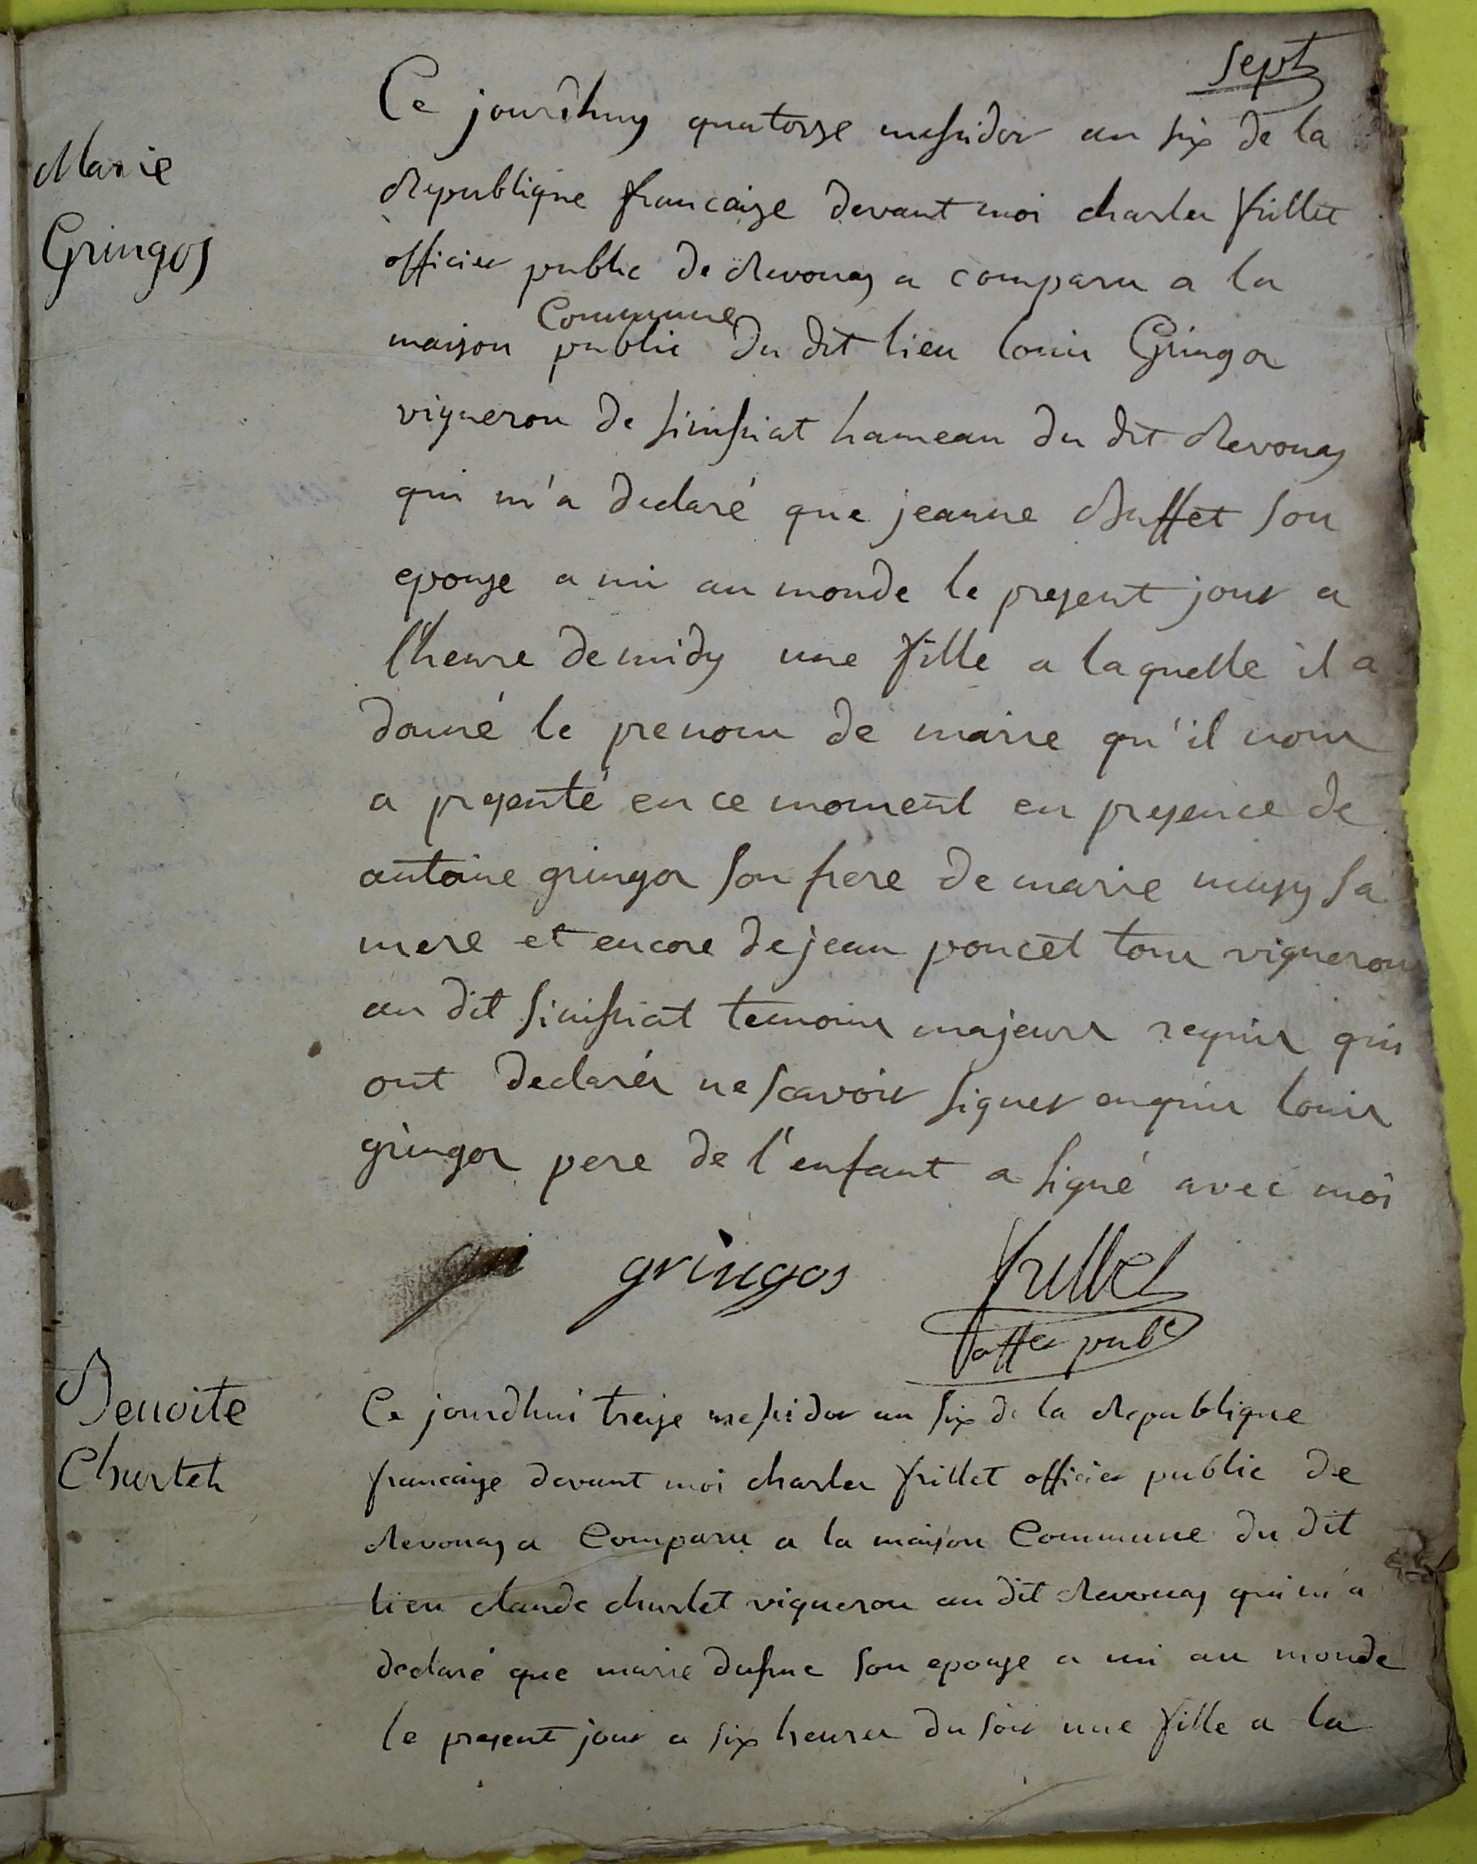 sept
Marie
Gringos
Ce jourdhuy quatorze messidor an six de la
Republique francaise devant moi charles frillet
officier public de Revonas a comparu a la
Commune
maison public du dit lieu louis Gringos
vigneron de simsiat hameau du dit Revonas
qui m'a declaré que jeanne Buffet son
epouse a mis au monde le present jour a
l'heure de midy une fille a laquelle il a
donné le prenom de marie qu'il nous
a presenté en ce moment en presence de
antoine gringos son frere de marie musy sa
mere et encore de jean poncet tous vignerons
au dit simsiat temoins majeurs requis qui
ont declarés ne scavoir signer enquis louis
gringos pere de l'enfant a signé avec moi
gringos frillet
offer pubc
Benoite
Churlet
Ce jourdhui treize messidor an six de la Republique
francaise devant moi charles frillet officier public de
Revonas a Comparu a la maison Commune du dit
lieu claude churlet vigneron au dit Revonas qui m'a
declaré que marie son epouse a mis au monde
le present jour a six heures du soir une fille a la